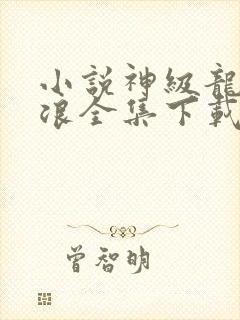 小説神級龍
浪全集下載
曾智明